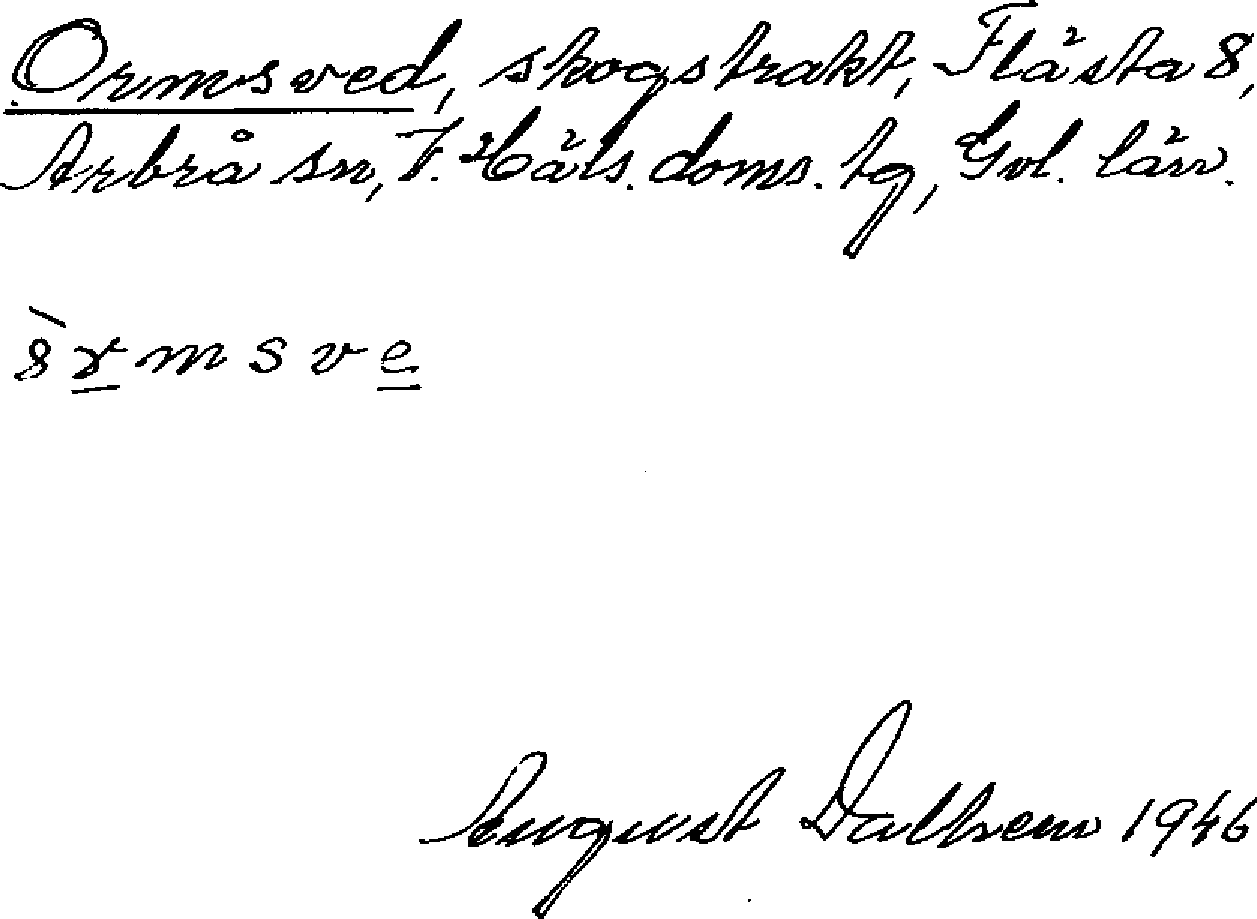 Ormsved, skogstrakt, Flästa 8,
Arbrå sn, V. Häls. doms. tg, Gvl. län.
August Dalhem 1946